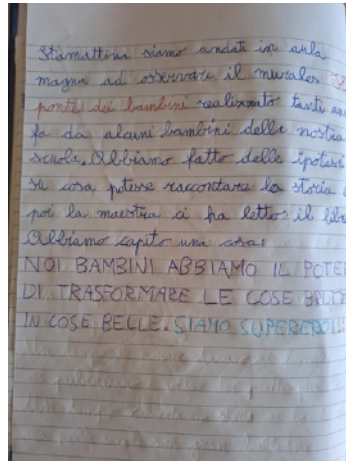 Stamattina siamo andati in aula
magna ad osservare il murales
ponte dei bambini realizzato tanti
fa da alcuni bambini della nostra
scuola. Abbiamo fatto delle ipotesi
su cosa potesse raccontare la storia
poi la maestra ci ha letto il
Abbiamo capito una cosa:
NOI BAMBINI ABBIAMO IL
DI TRASFORMARE LE COSE
IN COSE BELLE. SIAMO SUPEREROI!